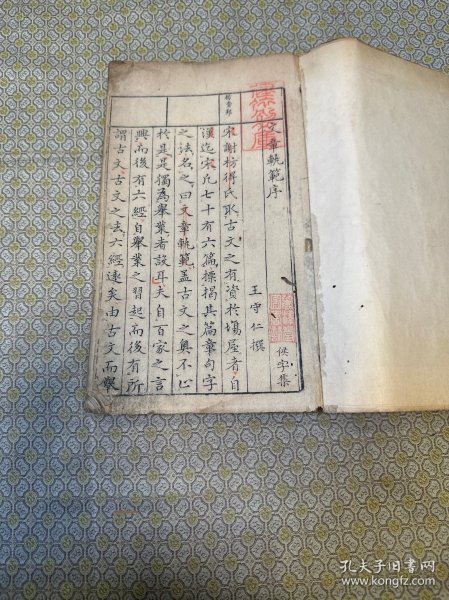 文章軌範序
王守仁撰
侯字集
宋謝枋得氏取古文之有資於場屋者自
漢迄宋凡七十有六篇標揭其篇章句字
之法名之曰文章軌範蓋古文之奧不止
於是是獨為舉業者設耳夫自百家之言
興而後有六經自舉業之習起而後有所
謂古文古文之去六經遠矣由古文而舉
孔夫子旧书网
www.kongfz.com